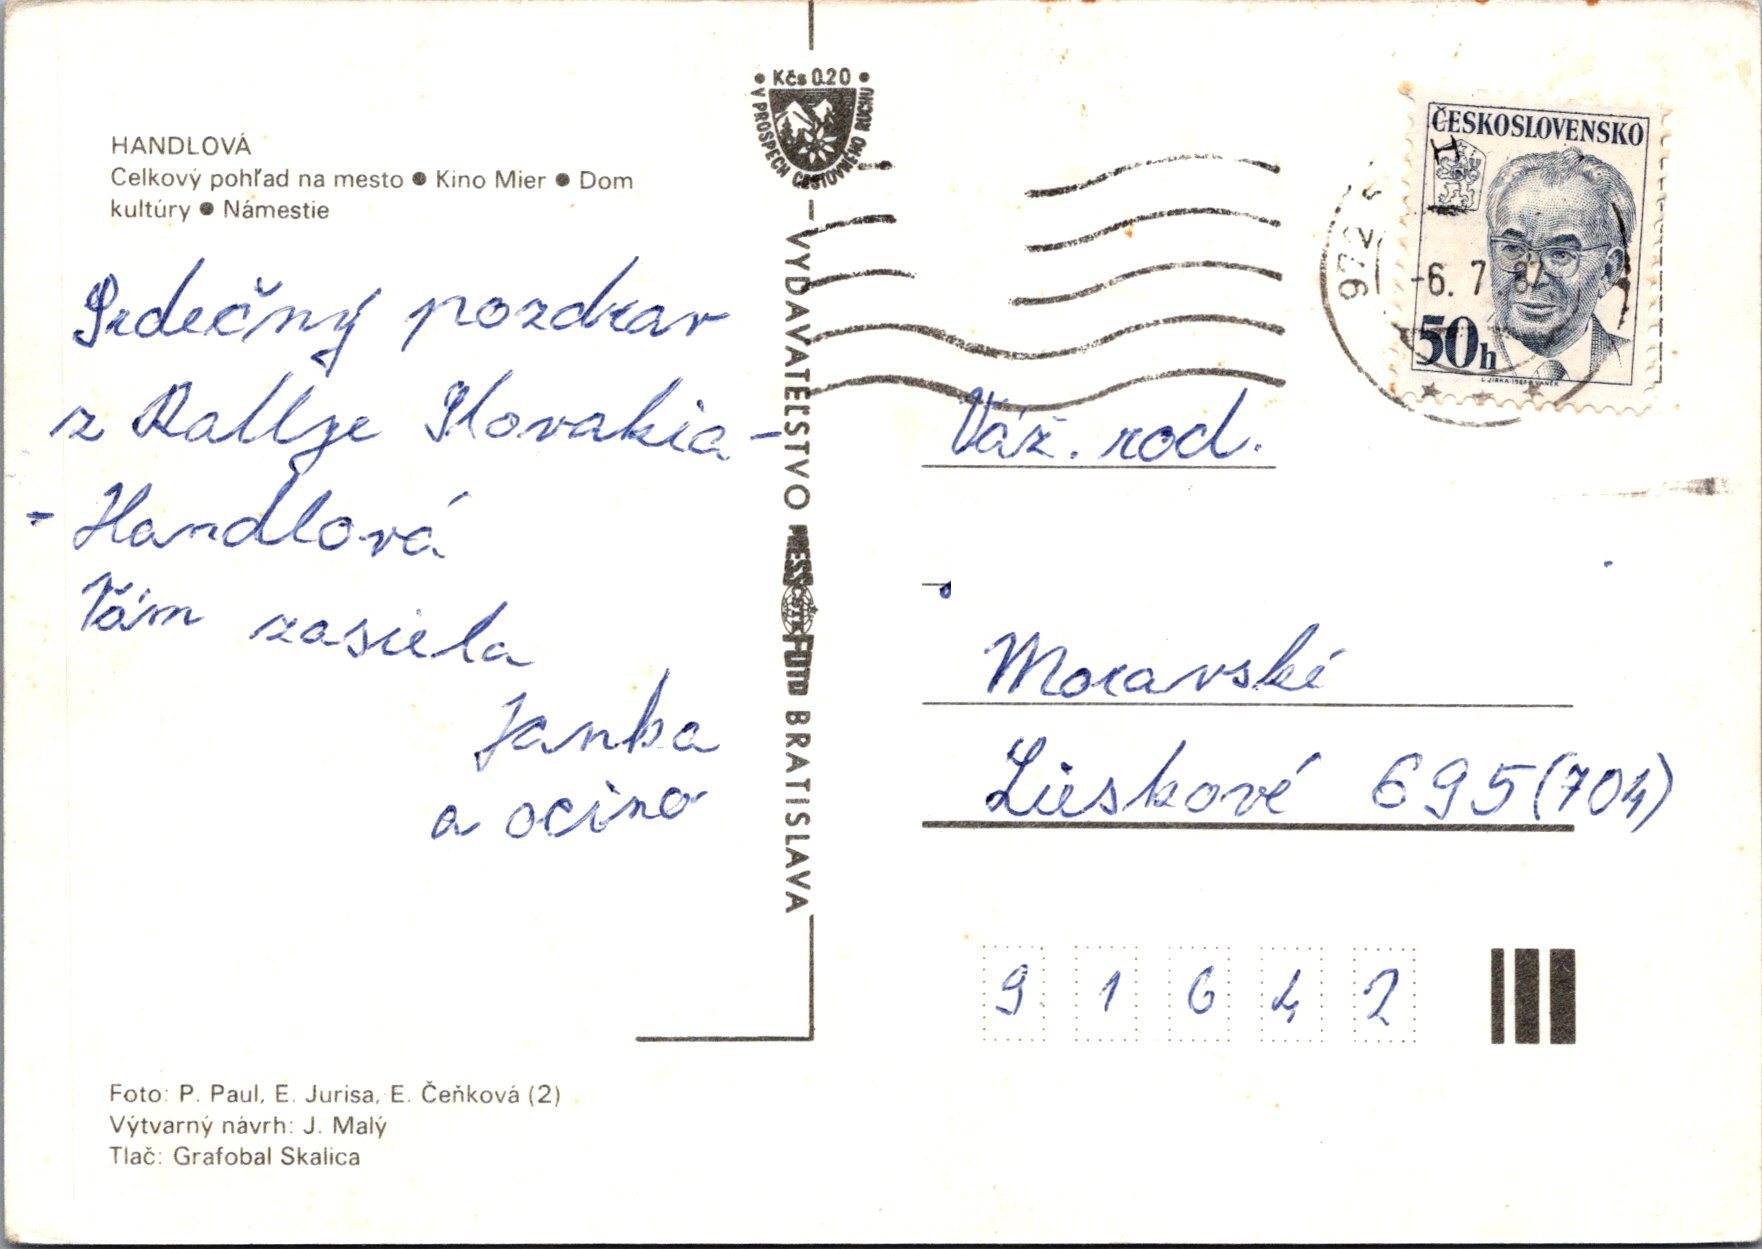 HANDLOVÁ
Celkový pohľad na mesto ● Kino Mier ● Dom
kultúry ● Námestie
Srdečný pozdrav
z Rallye Slovakia -
- Handlová
Vám zasiela
Janka
a ocino
Foto: P. Paul, E. Jurisa, E. Čeňková (2)
Výtvarný návrh: J. Malý
Tlač: Grafobal Skalica
• Kčs 0.20 •
V PROSPECH CESTOVNÉHO RUCHU
VYDAVATEĽSTVO PRESSFOTO BRATISLAVA
ČSTK
ČESKOSLOVENSKO
50h
972 5
-6. 7. 87
Váž. rod.
Moravské
Lieskové 695(704)
91642